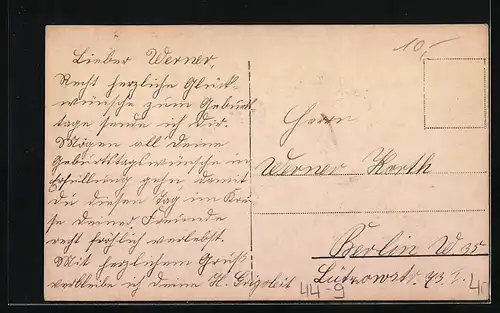 Lieber Werner,
Recht herzliche Glück-
wünsche zum Geburts
tage sende ich Dir.
Mögen all deine
Geburtstagswünsche in
Erfüllung gehn damit
du diesen Tag im Krei
se deiner Freunde
recht fröhlich verlebst.
Mit herzlichem Gruß
verbleibe ich deine H.
10,-
Herrn
Werner Korth
Berlin W 35
Lützowstr. 93 I.
44-9